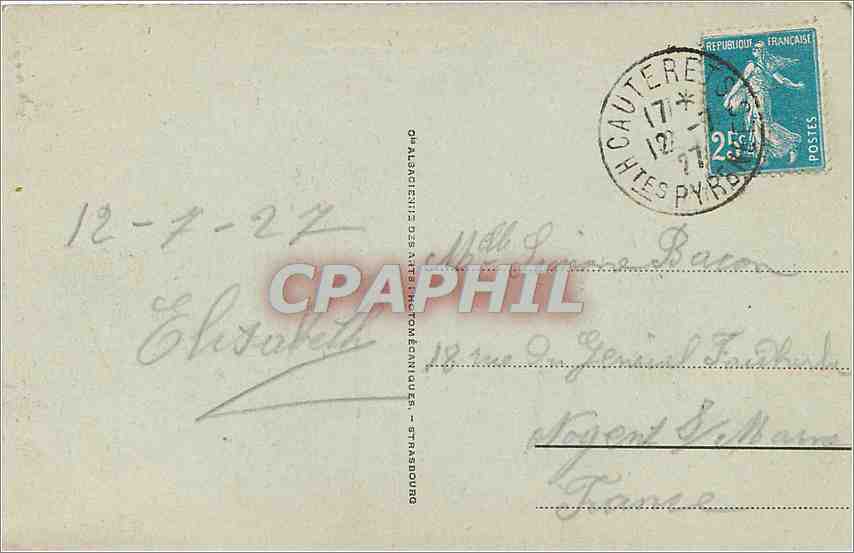 RÉPUBLIQUE FRANÇAISE
25c
POSTES
CAUTERETS
17*
12 -7
27
HTES PYRÉNÉES
12-7-27
Elisabeth
CPAPHIL
Cie ALSACIENNE DES ARTS PHOTOMÉCANIQUES. - STRASBOURG
Mlle Simone Bacon
18 rue du Général Faidherbe
Nogent S/ Marne
France